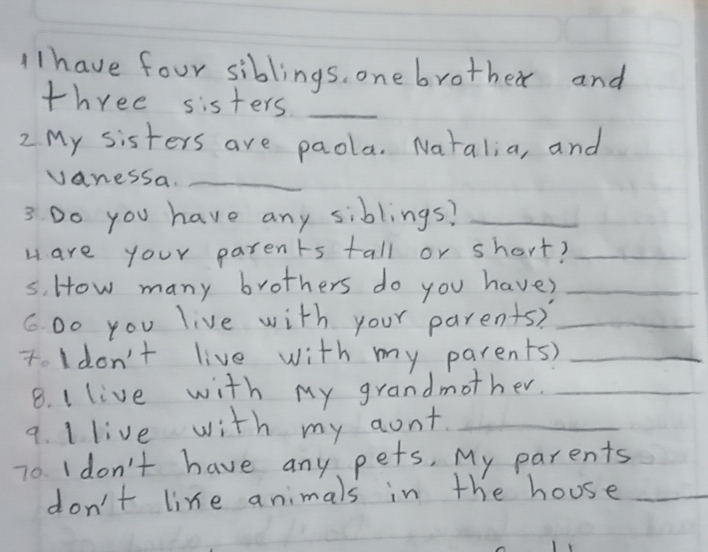 1 I have four siblings. one brother and
three sisters. ____
2. My sisters are paola. Natalia, and
vanessa. ____
3. Do you have any siblings? ____
4. are your parents tall or short? ____
5. How many brothers do you have? ____
6. Do you live with your parents? ____
7. I don't live with my parents) ____
8. I live with my grandmother. ____
9. I live with my aunt. ____
10. I don't have any pets. My parents
don't like animals in the house ____